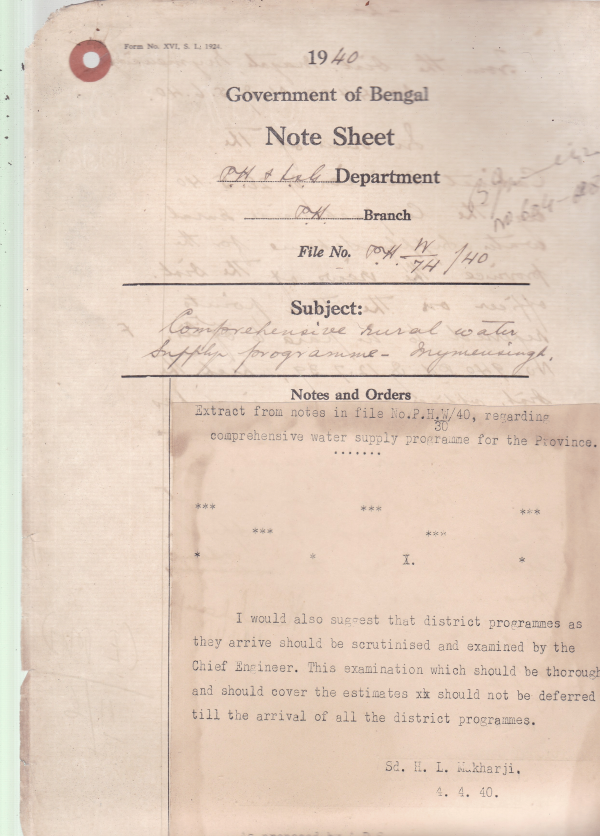 Form No. XVI, S. I.; 1924.
1940
Government of Bengal
Note Sheet
P.H & L.S.G Department
P.H. Branch
File No. P.H. W/74 /40
Subject:
Comprehensive rural water
Supply programme – Mymensingh.
Notes and Orders
Extract from notes in file No.P.H.W/40, regarding
30
comprehensive water supply programme for the Province.
.......
*** *** ***
*** ***
* * I. *
I would also suggest that district programmes as
they arrive should be scrutinised and examined by the
Chief Engineer. This examination which should be thorough
and should cover the estimates xx should not be deferred
till the arrival of all the district programmes.
Sd. H. L. Mukharji.
4. 4. 40.